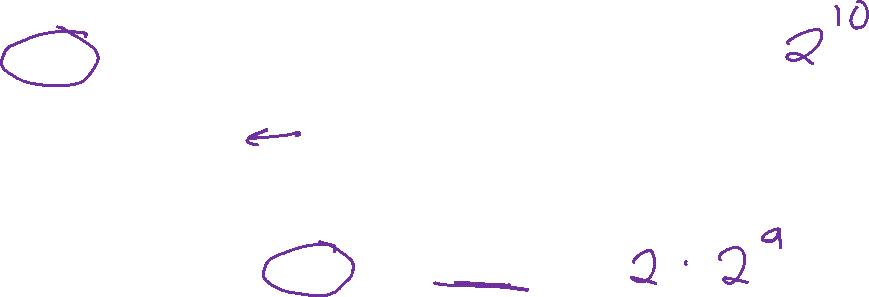 2^10
2 · 2^9